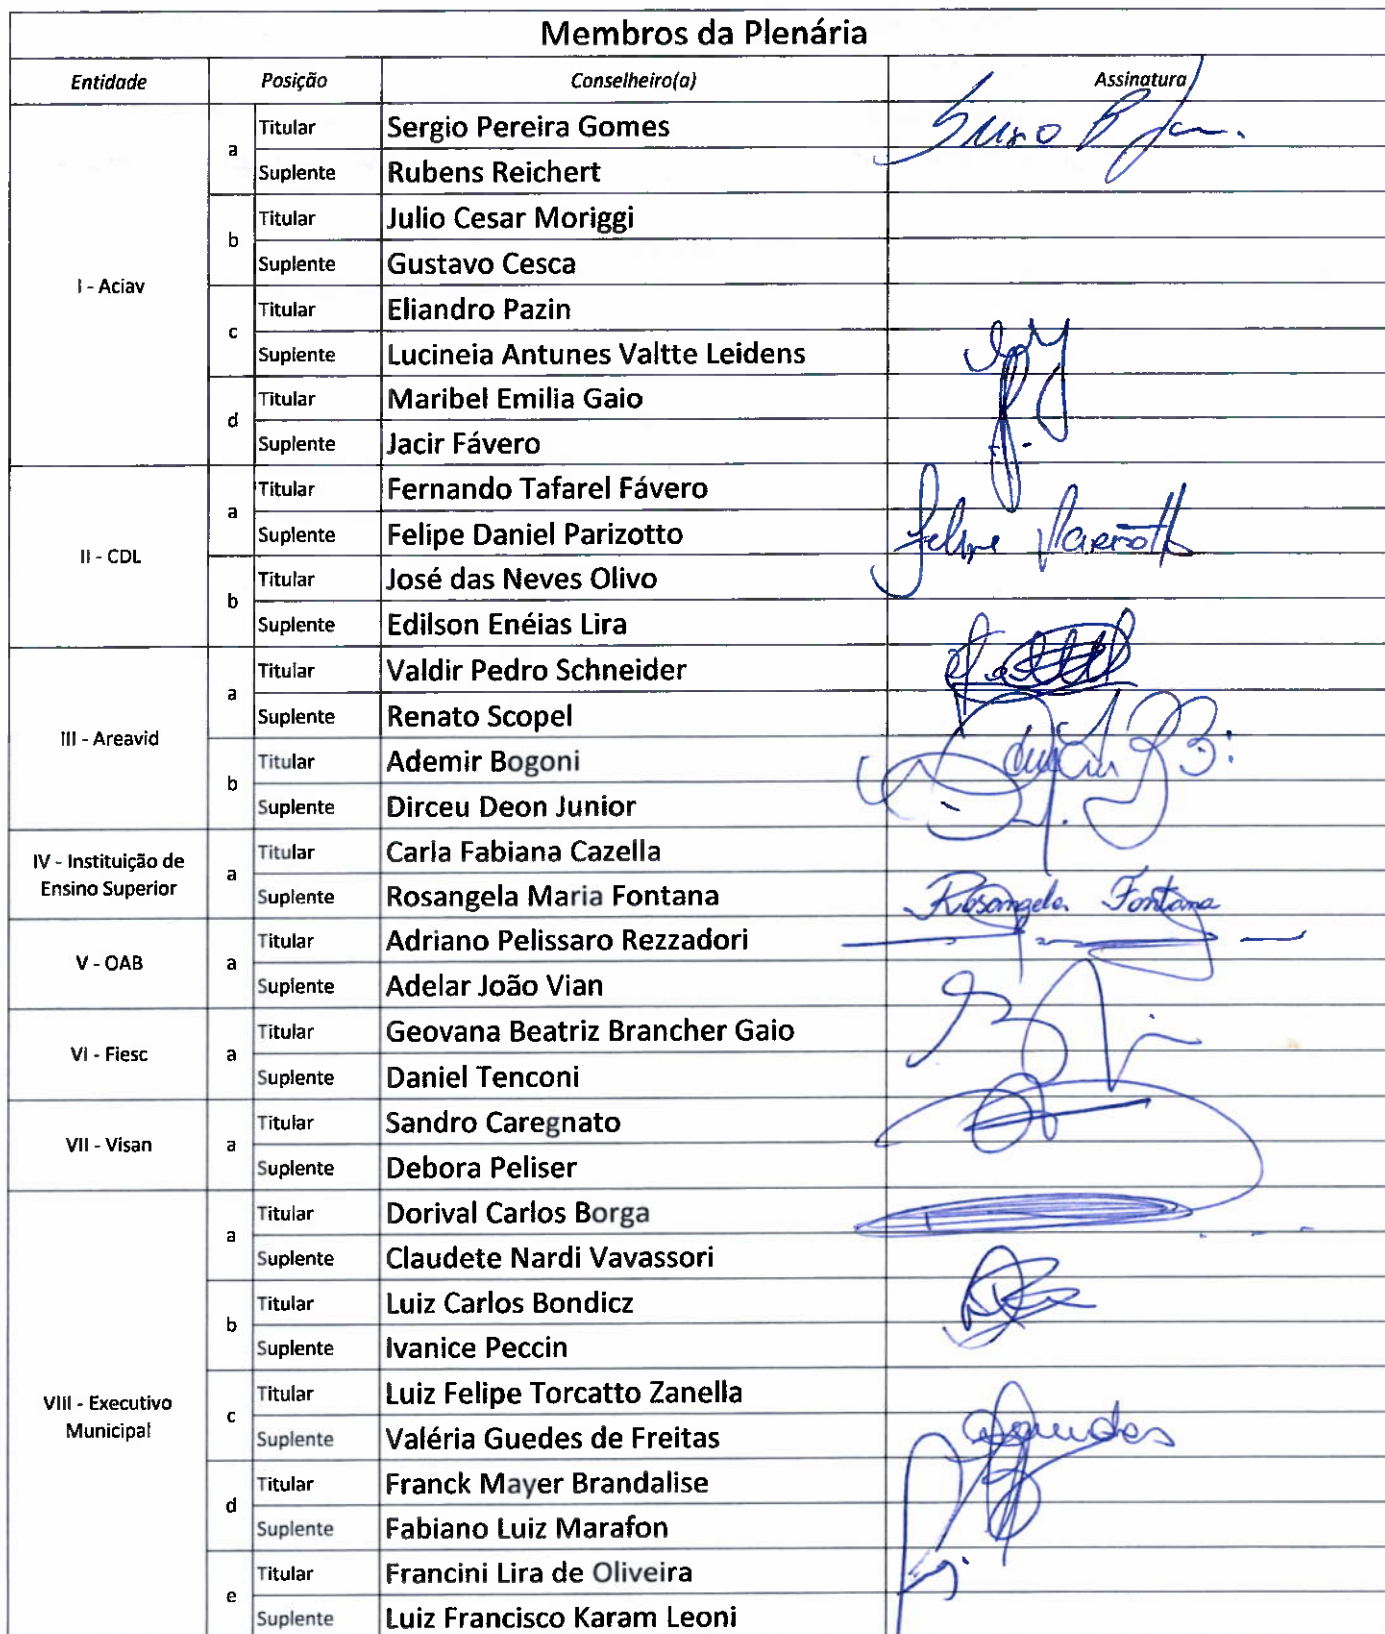 Membros da Plenária
Entidade Posição Conselheiro(a) Assinatura
I - Aciav a Titular Sergio Pereira Gomes
Suplente Rubens Reichert
b Titular Julio Cesar Moriggi
Suplente Gustavo Cesca
c Titular Eliandro Pazin
Suplente Lucineia Antunes Valtte Leidens
d Titular Maribel Emilia Gaio
Suplente Jacir Fávero
II - CDL a Titular Fernando Tafarel Fávero
Suplente Felipe Daniel Parizotto Felipe
b Titular José das Neves Olivo
Suplente Edilson Enéias Lira
III - Areavid a Titular Valdir Pedro Schneider
Suplente Renato Scopel
b Titular Ademir Bogoni
Suplente Dirceu Deon Junior
IV - Instituição de Ensino Superior a Titular Carla Fabiana Cazella
Suplente Rosangela Maria Fontana Rosangela Fontana
V - OAB a Titular Adriano Pelissaro Rezzadori
Suplente Adelar João Vian
VI - Fiesc a Titular Geovana Beatriz Brancher Gaio
Suplente Daniel Tenconi
VII - Visan a Titular Sandro Caregnato
Suplente Debora Peliser
VIII - Executivo Municipal a Titular Dorival Carlos Borga
Suplente Claudete Nardi Vavassori
b Titular Luiz Carlos Bondicz
Suplente Ivanice Peccin
c Titular Luiz Felipe Torcatto Zanella
Suplente Valéria Guedes de Freitas
d Titular Franck Mayer Brandalise
Suplente Fabiano Luiz Marafon
e Titular Francini Lira de Oliveira
Suplente Luiz Francisco Karam Leoni